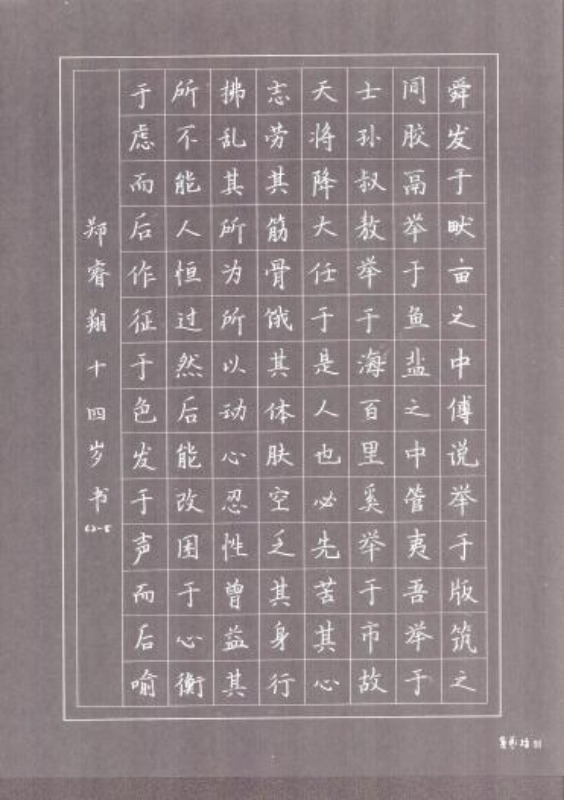 舜发于畎亩之中傅说举于版筑之
间胶鬲举于鱼盐之中管夷吾举于
士孙叔敖举于海百里奚举于市故
天将降大任于是人也必先苦其心
志劳其筋骨饿其体肤空乏其身行
拂乱其所为所以动心忍性曾益其
所不能人恒过然后能改困于心衡
于虑而后作征于色发于声而后喻
郑睿翔十四岁书